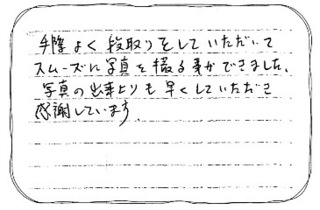 手際よく段取りをしていただいて
スムーズに写真を撮る事ができました。
写真の出来よりも早くしていただき
感謝しています。